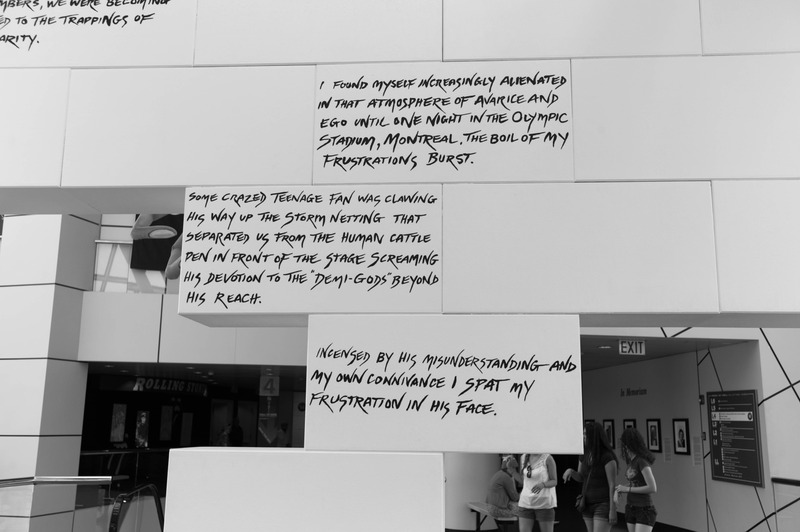 MBERS, WE WERE BECOMING
ED TO THE TRAPPINGS OF
ARITY.
I FOUND MYSELF INCREASINGLY ALIENATED
IN THAT ATMOSPHERE OF AVARICE AND
EGO UNTIL ONE NIGHT IN THE OLYMPIC
STADIUM, MONTREAL. THE BOIL OF MY
FRUSTRATIONS BURST.
SOME CRAZED TEENAGE FAN WAS CLAWING
HIS WAY UP THE STORM NETTING THAT
SEPARATED US FROM THE HUMAN CATTLE
PEN IN FRONT OF THE STAGE SCREAMING
HIS DEVOTION TO THE "DEMI-GODS" BEYOND
HIS REACH.
INCENSED BY HIS MISUNDERSTANDING AND
MY OWN CONNIVANCE I SPAT MY
FRUSTRATION IN HIS FACE.
EXIT
ROLLING
4
In Memoriam